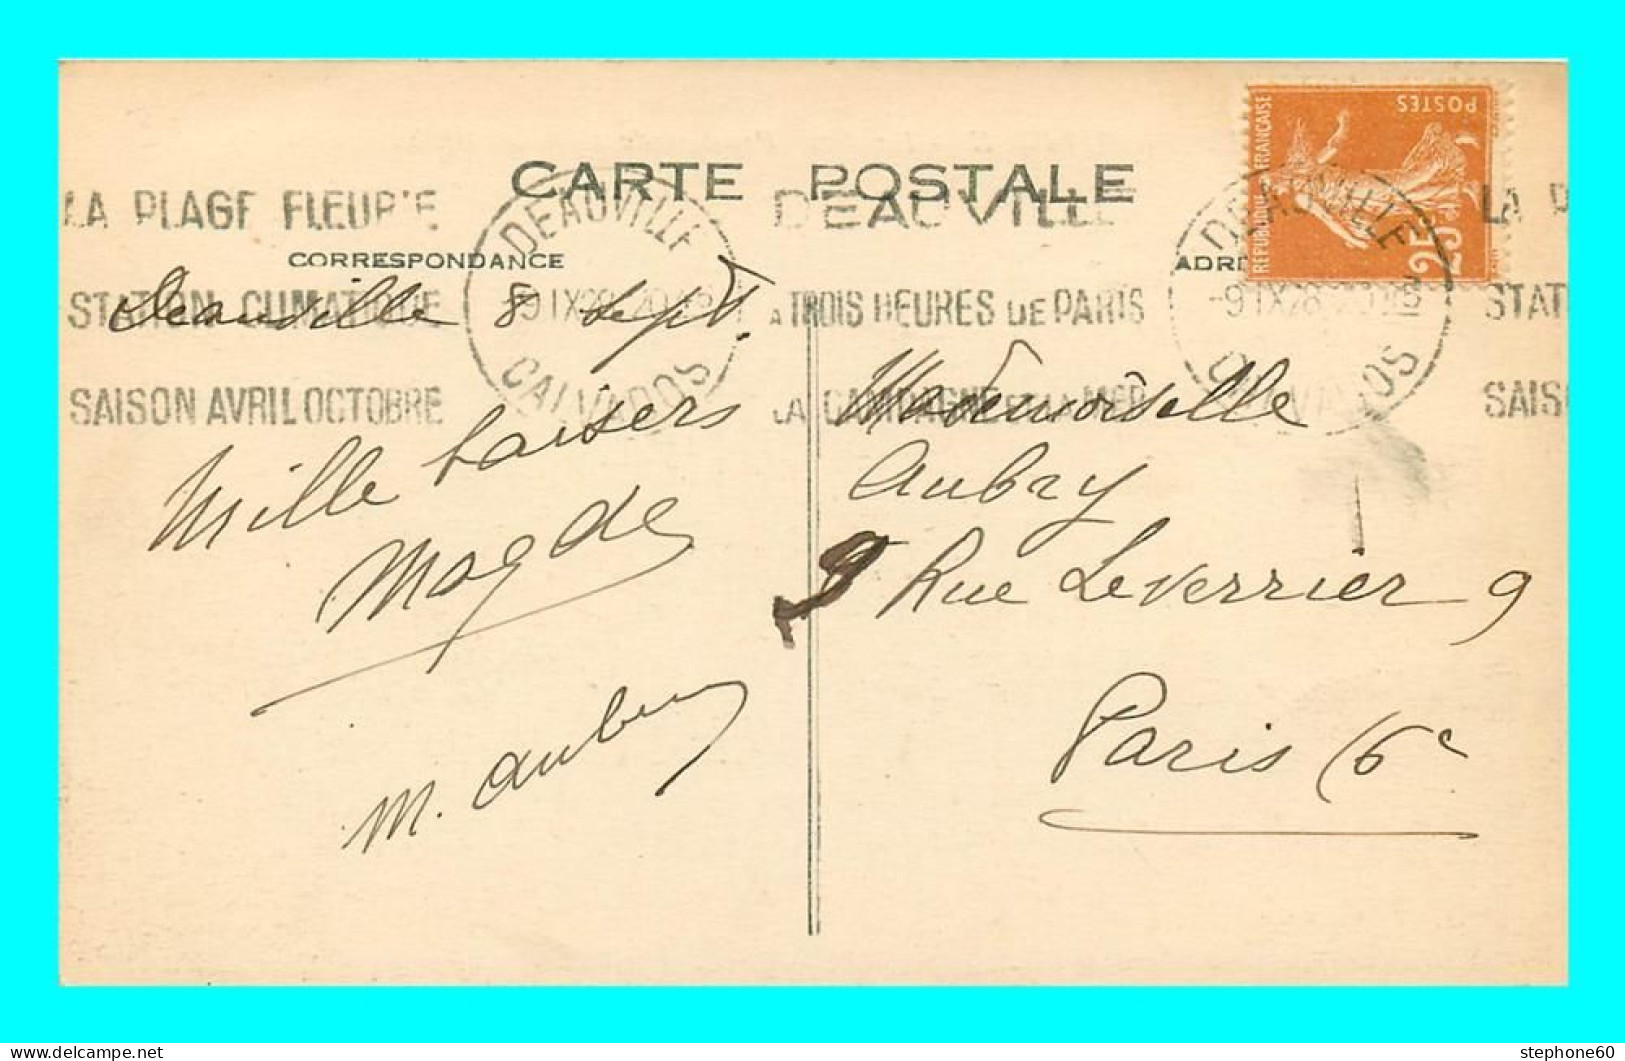 CARTE POSTALE
CORRESPONDANCE
ADRE
LA PLAGE FLEURIE
STATION CLIMATIQUE
SAISON AVRIL OCTOBRE
DEAUVILLE
-9 IX 28
CALVADOS
DEAUVILLE
A TROIS HEURES DE PARIS
LA CAMPAGNE ET LA MER
DEAUVILLE
-9 IX 28
CALVADOS
LA P
STAT
SAIS
REPUBLIQUE FRANCAISE
POSTES
25
Deauville 8 Sept
Mille baisers
Magde
M. Aubry
Mademoiselle
Aubry
9 Rue Leverrier 9
Paris (6e
stephone60
delcampe.net